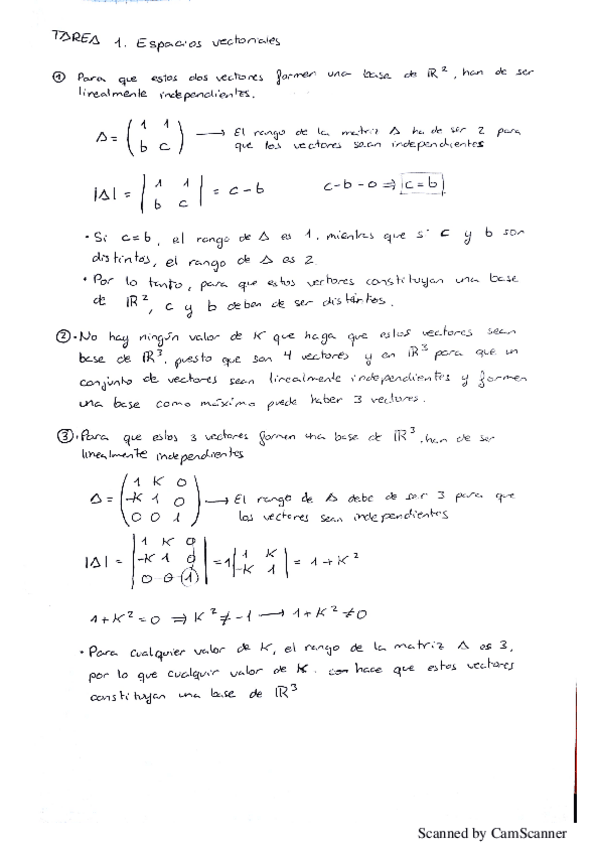 TAREA 1. Espacios vectoriales
① Para que estos dos vectores formen una base de ℝ², han de ser
linealmente independientes.
Δ = ( 1 1
b c ) → El rango de la matriz Δ ha de ser 2 para
que los vectores sean independientes
|Δ| = | 1 1
b c | = c - b c - b - 0 ⇒ c = b
· Si c=b, el rango de Δ es 1, mientras que si c y b son
distintos, el rango de Δ es 2.
· Por lo tanto, para que estos vectores constituyan una base
de ℝ², c y b deben de ser distintos.
② · No hay ningún valor de K que haga que estos vectores sean
base de ℝ³, puesto que son 4 vectores y en ℝ³ para que un
conjunto de vectores sean linealmente independientes y formen
una base como máximo puede haber 3 vectores.
③ · Para que estos 3 vectores formen una base de ℝ³, han de ser
linealmente independientes
Δ = ( 1 K 0
-K 1 0
0 0 1 ) → El rango de Δ debe de ser 3 para que
los vectores sean independientes
|Δ| = | 1 K 0
-K 1 0
0 0 1 | = 1 | 1 K
-K 1 | = 1 + K²
1 + K² = 0 ⇒ K² ≠ -1 → 1 + K² ≠ 0
· Para cualquier valor de K, el rango de la matriz Δ es 3,
por lo que cualquir valor de K hace que estos vectores
constituyan una base de ℝ³
Scanned by CamScanner